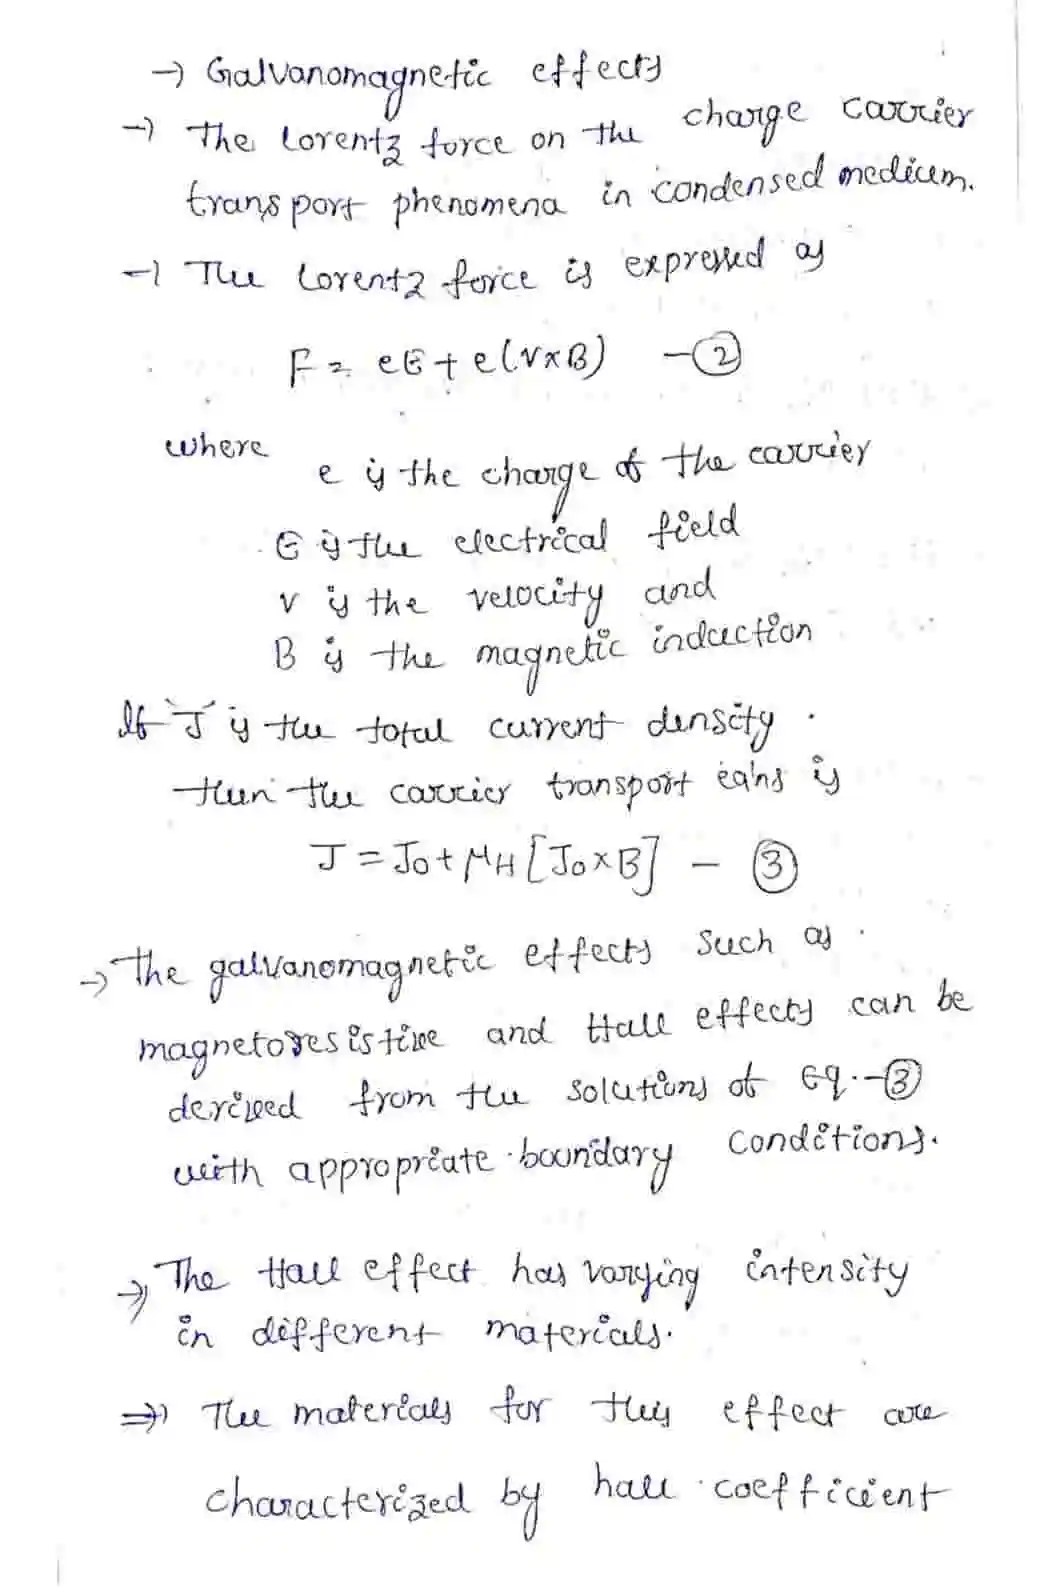 → Galvanomagnetic effects
→ The Lorentz force on the charge carrier
transport phenomena in condensed medium.
→ The Lorentz force is expressed as
F = eE + e(V×B) - ②
where
e is the charge of the carrier
E is the electrical field
v is the velocity and
B is the magnetic induction
If 'J' is the total current density.
then the carrier transport eqns is
J = J0 + μH [J0×B] - ③
→ The galvanomagnetic effects such as
magnetoresistive and Hall effects can be
derived from the solutions of Eq.-③
with appropriate boundary conditions.
→ The Hall effect has varying intensity
in different materials.
⇒ The materials for this effect are
characterized by hall coefficient